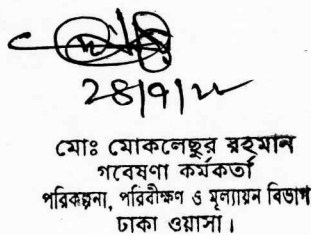 28/9/২২
মোঃ মোকলেছুর রহমান
গবেষণা কর্মকর্তা
পরিকল্পনা, পরিবীক্ষণ ও মূল্যায়ন বিভাগ
ঢাকা ওয়াসা।